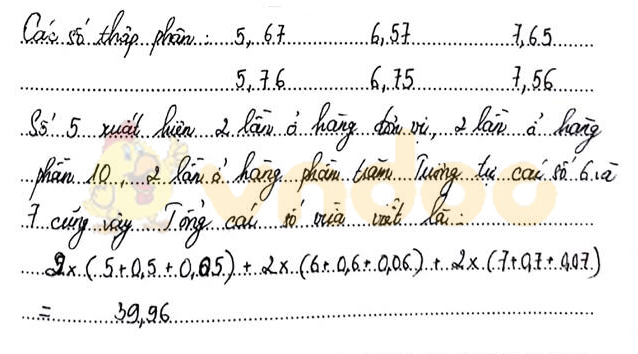 Các số thập phân: 5,67 6,57 7,65
5,76 6,75 7,56
Số 5 xuất hiện 2 lần ở hàng đơn vị, 2 lần ở hàng
phần 10, 2 lần ở hàng phần trăm Tương tự các số 6 và
7 cũng vậy Tổng các số vừa viết là:
2x(5+0,5+0,05)+2x(6+0,6+0,06)+2x(7+0,7+0,07)
= 39,96
vndoo